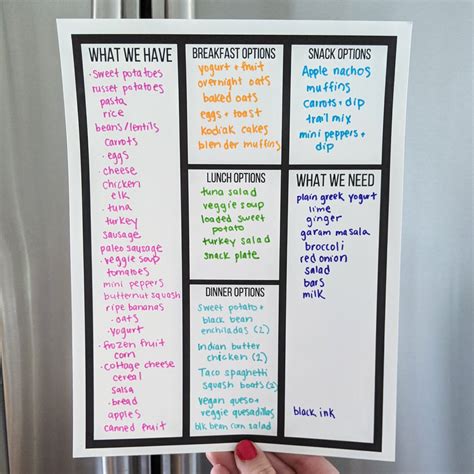 WHAT WE HAVE
• sweet potatoes
russet potatoes
pasta
rice
beans/lentils
carrots
• eggs
• cheese
chicken
elk
• tuna
turkey
sausage
paleo sausage
• veggie soup
tomatoes
mini peppers
butternut squash
ripe bananas
• oats
• yogurt
• frozen fruit
corn
• cottage cheese
cereal
salsa
• bread
apples
canned fruit
BREAKFAST OPTIONS
yogurt + fruit
overnight oats
baked oats
eggs + toast
Kodiak cakes
blender muffins
LUNCH OPTIONS
tuna salad
veggie soup
loaded sweet
potato
turkey salad
snack plate
DINNER OPTIONS
Sweet potato +
black bean
enchiladas (2)
Indian butter
chicken (2)
Taco spaghetti
squash boats (2)
vegan queso +
veggie quesadillas
blk bean corn salad
SNACK OPTIONS
Apple nachos
muffins
carrots + dip
trail mix
mini peppers +
dip
WHAT WE NEED
plain greek yogurt
lime
ginger
garam masala
broccoli
red onion
salad
bars
milk
black ink